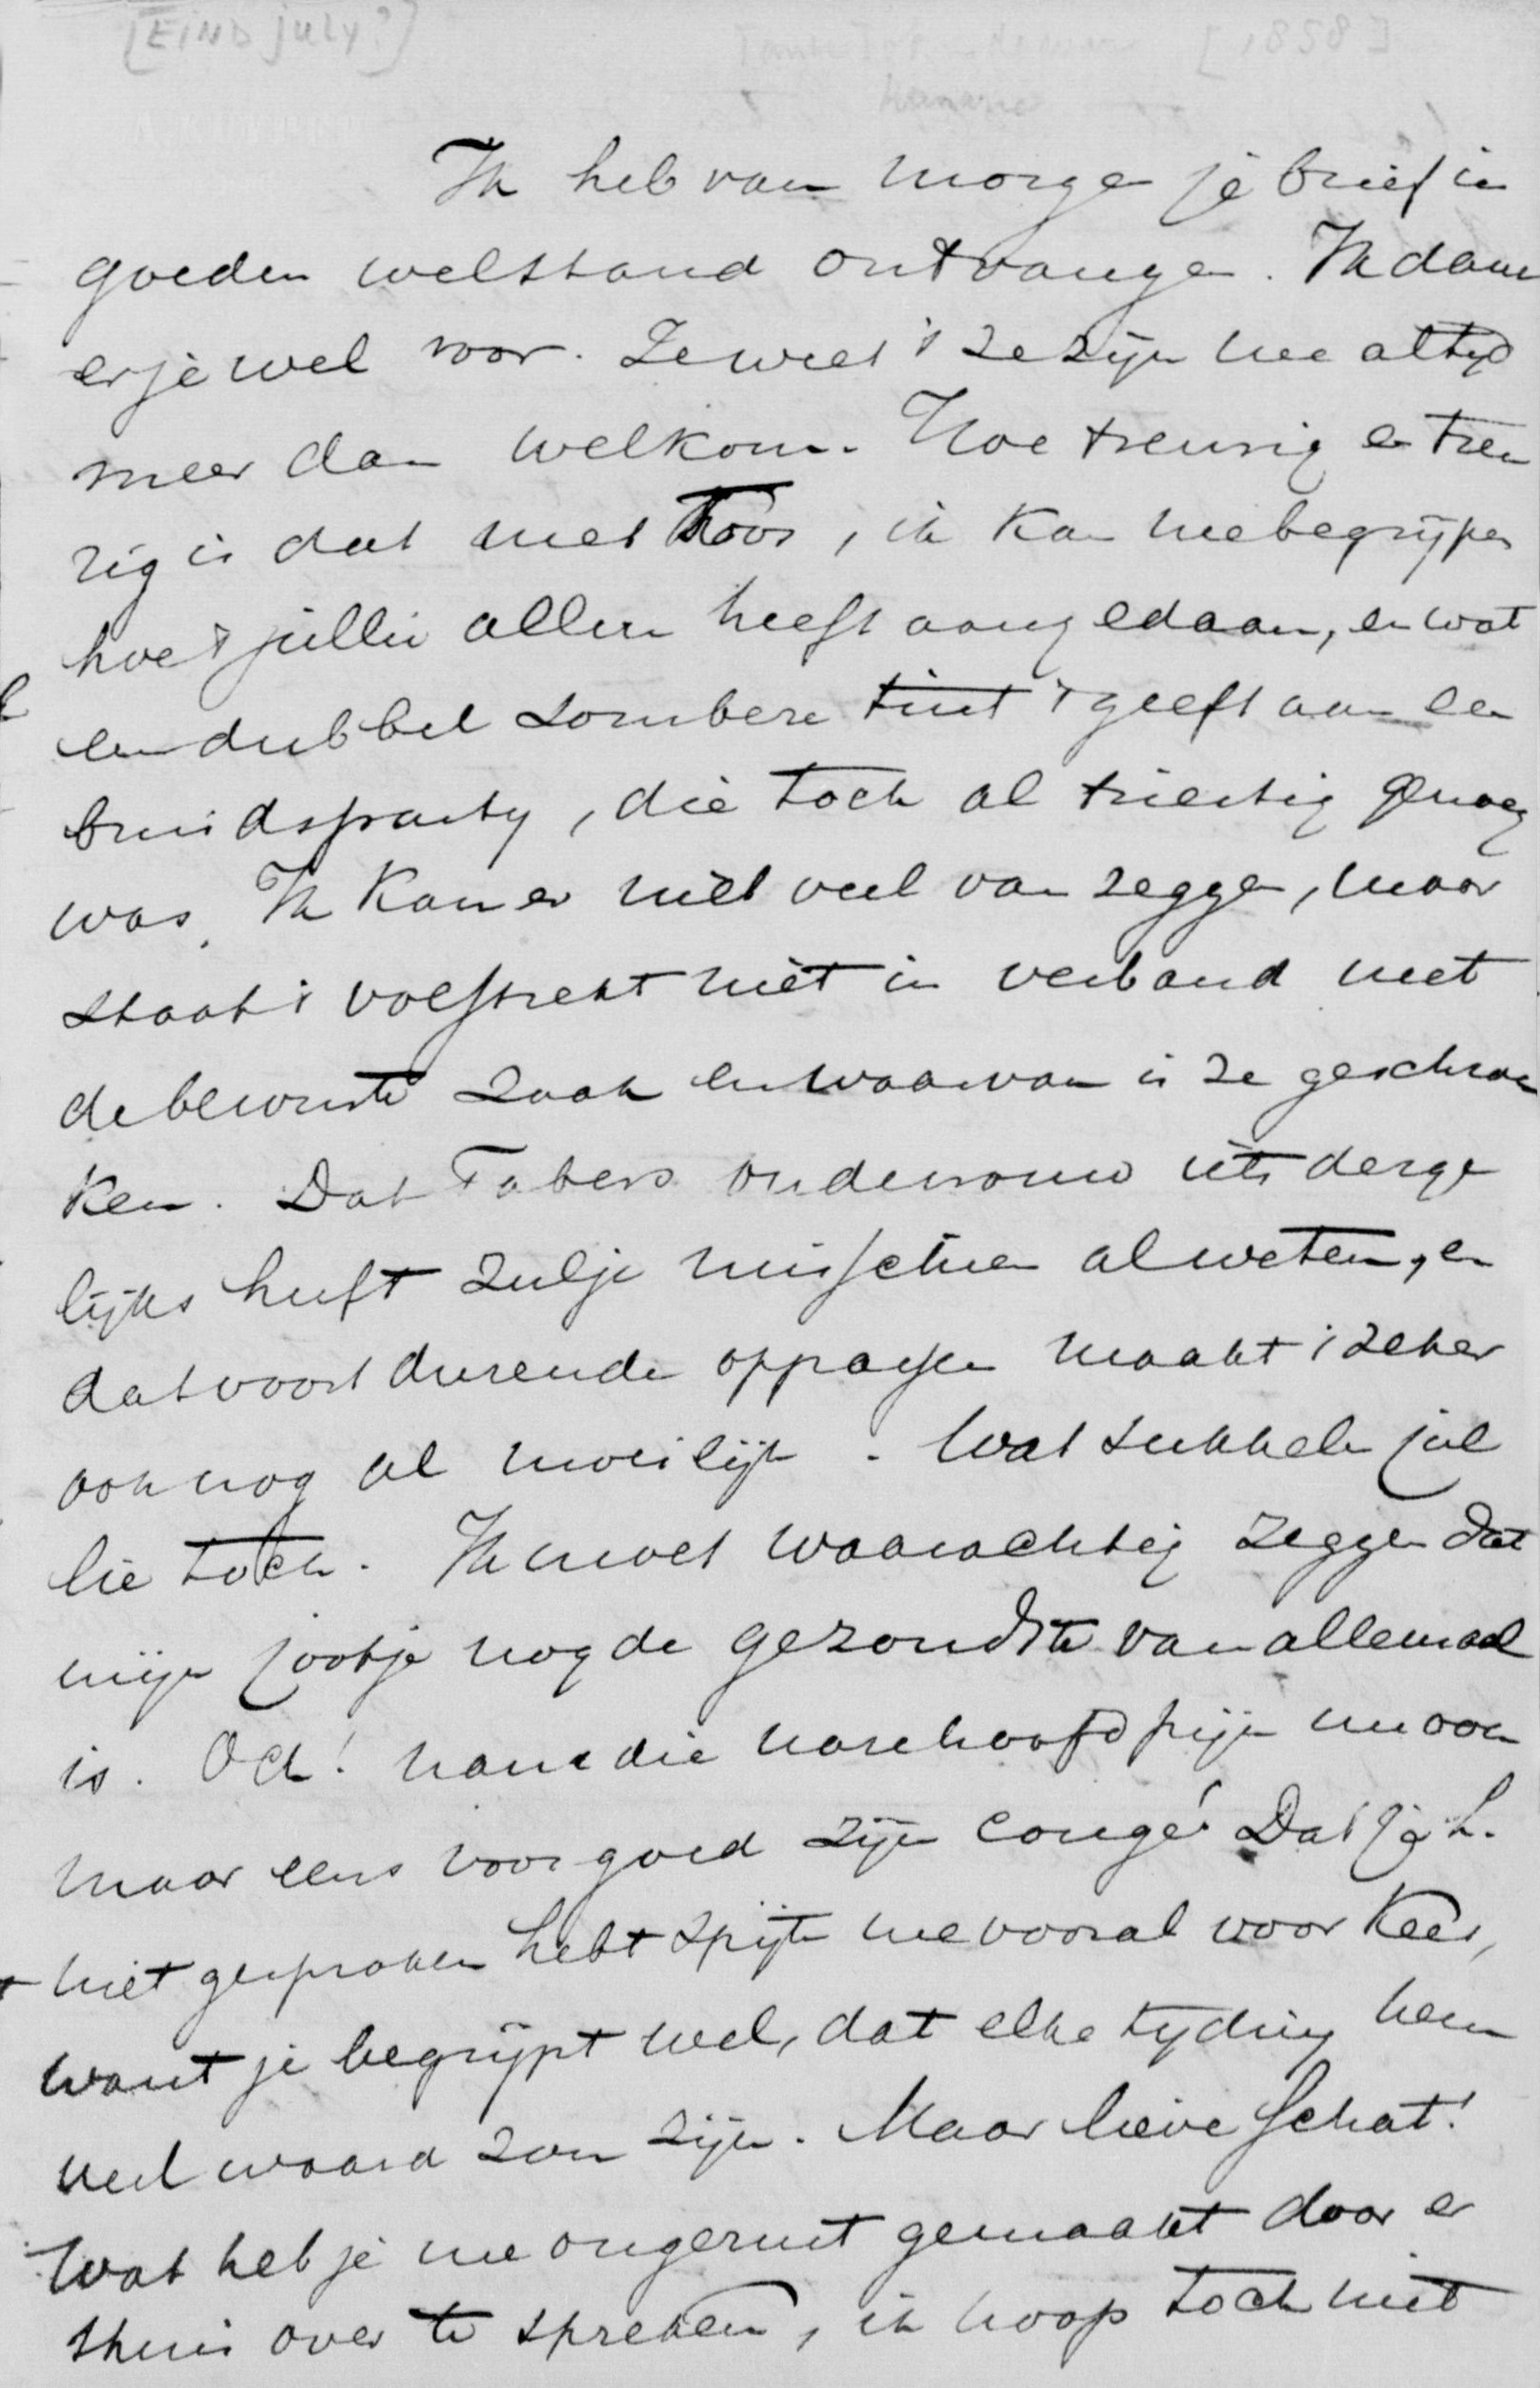 [EIND july?] [1858]
Ik heb van morgen je brief in
goeden welstand ontvangen. Ik dank
er je wel voor. Je weet 't ze zijn me altyd
meer dan welkom. Hoe treurig en treu
rig is dat met Koos, ik kan me begrijpen
hoe 't jullie allen heeft aangedaan, en wat
een dubbel sombere tint 't geeft aan een
bruidsparty, die toch al triestig genoeg
was. Ik kan er niet veel van zeggen, maar
staat 't volstrekt niet in verband met
de bewuste zaak en waarvan is ze geschrok
ken. Dat Tabers oudevrouw iets derge
lijks heeft zul je misschien al weten, en
dat voortdurende oppassen maakt 't zeker
ook nog al moeilijk. Wat sukkelen jul
lie toch. Ik moet waarachtig zeggen dat
mijn Jootje nog de gezondste van allemaal
is. Och! nam die nare hoofdpijn nu ook
maar eens voor goed zijn congé! Dat je L.
niet gesproken hebt spijt me vooral voor Kees,
want je begrijpt wel, dat elke tyding hem
veel waard zou zijn. Maar lieve schat!
Wat heb je me ongerust gemaakt door er
thuis over te spreken, ik hoop toch niet